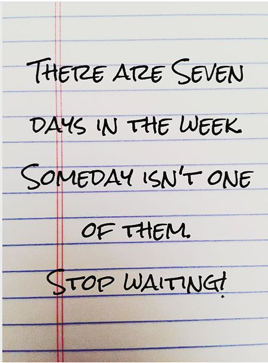 There are Seven
days in the week.
Someday isn't one
of them.
Stop waiting!